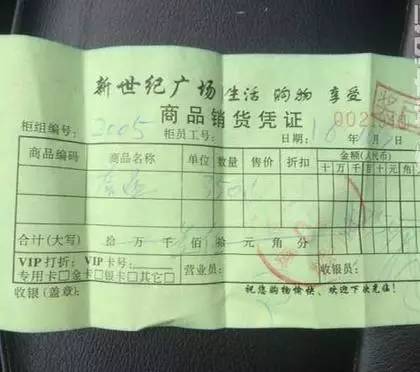 新世纪广场 生活 购物 享受
商品销货凭证
柜组编号: 2005 柜员工号: 日期: 年 月 日
商品编码 商品名称 单位 数量 售价 折扣 金额(人民币)
十 万 千 百 十 元 角 分
合计(大写) 拾 万 千 佰 拾 元 角 分
VIP打折: VIP卡号:
专用卡□金卡□银卡□其它□ 营业员: 收银员:
收银(盖章): 祝您购物愉快、欢迎下次光临!